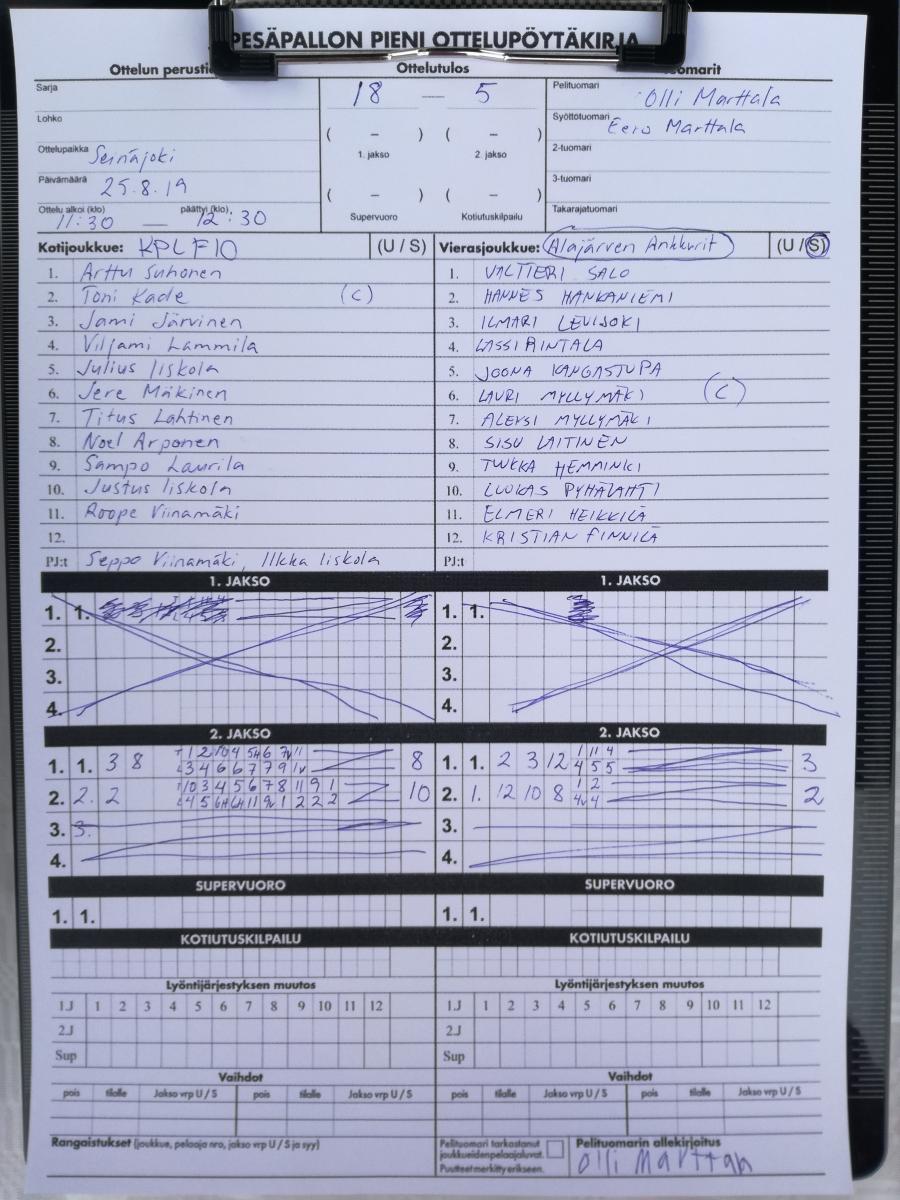 PESÄPALLON PIENI OTTELUPÖYTÄKIRJA
Ottelun
Ottelutulos
Sarja
Lohko
Ottelupaikka Seinäjoki
Päivämäärä 25.8.19
Ottelu alkoi (klo) päättyi (klo)
11:30 — 12:30
18 — 5
( – ) ( – )
1. jakso 2. jakso
( – ) ( – )
Supervuoro Kotiutuskilpailu
Pelituomari Olli Marttala
Syöttötuomari Eero Marttala
2-tuomari
3-tuomari
Takarajatuomari
Kotijoukkue: KPL F10 (U / S)
1. Arttu Suhonen
2. Toni Kade (C)
3. Jami Järvinen
4. Viljami Lammila
5. Julius Iiskola
6. Jere Mäkinen
7. Titus Lahtinen
8. Noel Arponen
9. Sampo Laurila
10. Justus Iiskola
11. Roope Viinamäki
12.
PJ:t Seppo Viinamäki, Ilkka Iiskola
Vierasjoukkue: Alajärven Ankkurit (U / S)
1. VALTTERI SALO
2. HANNES HANKANIEMI
3. ILMARI LEVIJOKI
4. LASSI RINTALA
5. JOONA KANGASTUPA
6. LAURI MYLLYMÄKI (C)
7. ALEKSI MYLLYMÄKI
8. SISU LAITINEN
9. TUKKA HEMMINKI
10. LUUKAS PYHÄLAHTI
11. ELMERI HEIKKILÄ
12. KRISTIAN FINNILÄ
PJ:t
1. JAKSO
1. 1.
2.
3.
4.
1. JAKSO
1. 1.
2.
3.
4.
2. JAKSO
1. 1. 3 8 8
2. 2. 2 10
3. 3.
4.
2. JAKSO
1. 1. 2 3 12 1 11 4 3
4 5 5
2. 1. 12 10 8 1 2 2
3.
4.
SUPERVUORO
1. 1.
SUPERVUORO
1. 1.
KOTIUTUSKILPAILU
KOTIUTUSKILPAILU
Lyöntijärjestyksen muutos
1.J 1 2 3 4 5 6 7 8 9 10 11 12
2.J
Sup
Lyöntijärjestyksen muutos
1.J 1 2 3 4 5 6 7 8 9 10 11 12
2.J
Sup
Vaihdot
pois tilalle Jakso vrp U / S pois tilalle Jakso vrp U / S
Vaihdot
pois tilalle Jakso vrp U / S pois tilalle Jakso vrp U / S
Rangaistukset (joukkue, pelaaja nro, jakso vrp U / S ja syy)
Pelituomari tarkastanut
joukkueiden pelaajaluvat.
Puutteet merkitty erikseen.
Pelituomarin allekirjoitus
Olli Marttala